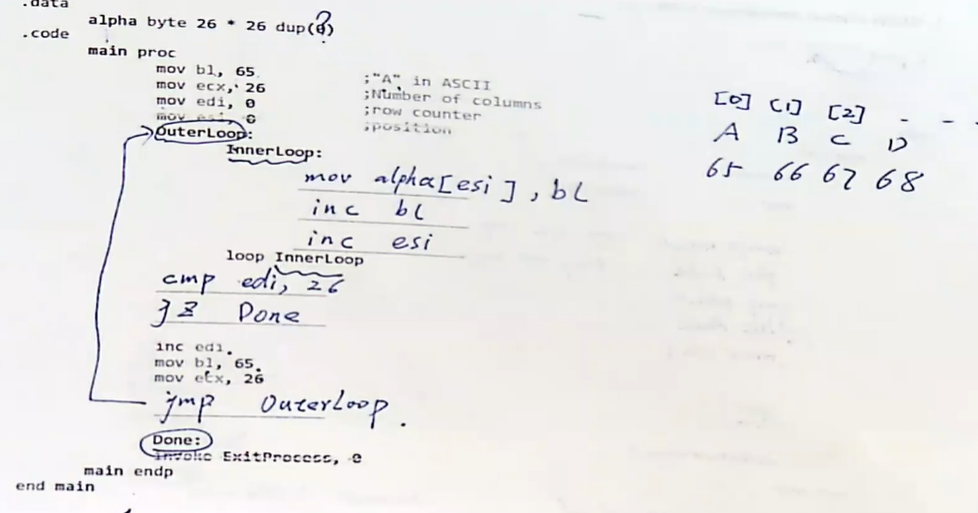 .data
alpha byte 26 * 26 dup(?)
.code
main proc
mov bl, 65 ;"A" in ASCII
mov ecx, 26 ;Number of columns
mov edi, 0 ;row counter
mov esi, 0 ;position
OuterLoop:
InnerLoop:
mov alpha[esi], bl
inc bl
inc esi
loop InnerLoop
cmp edi, 26
jz Done
inc edi
mov bl, 65
mov ecx, 26
jmp OuterLoop.
Done:
invoke ExitProcess, 0
main endp
end main
[0] [1] [2] - - -
A B C D
65 66 67 68